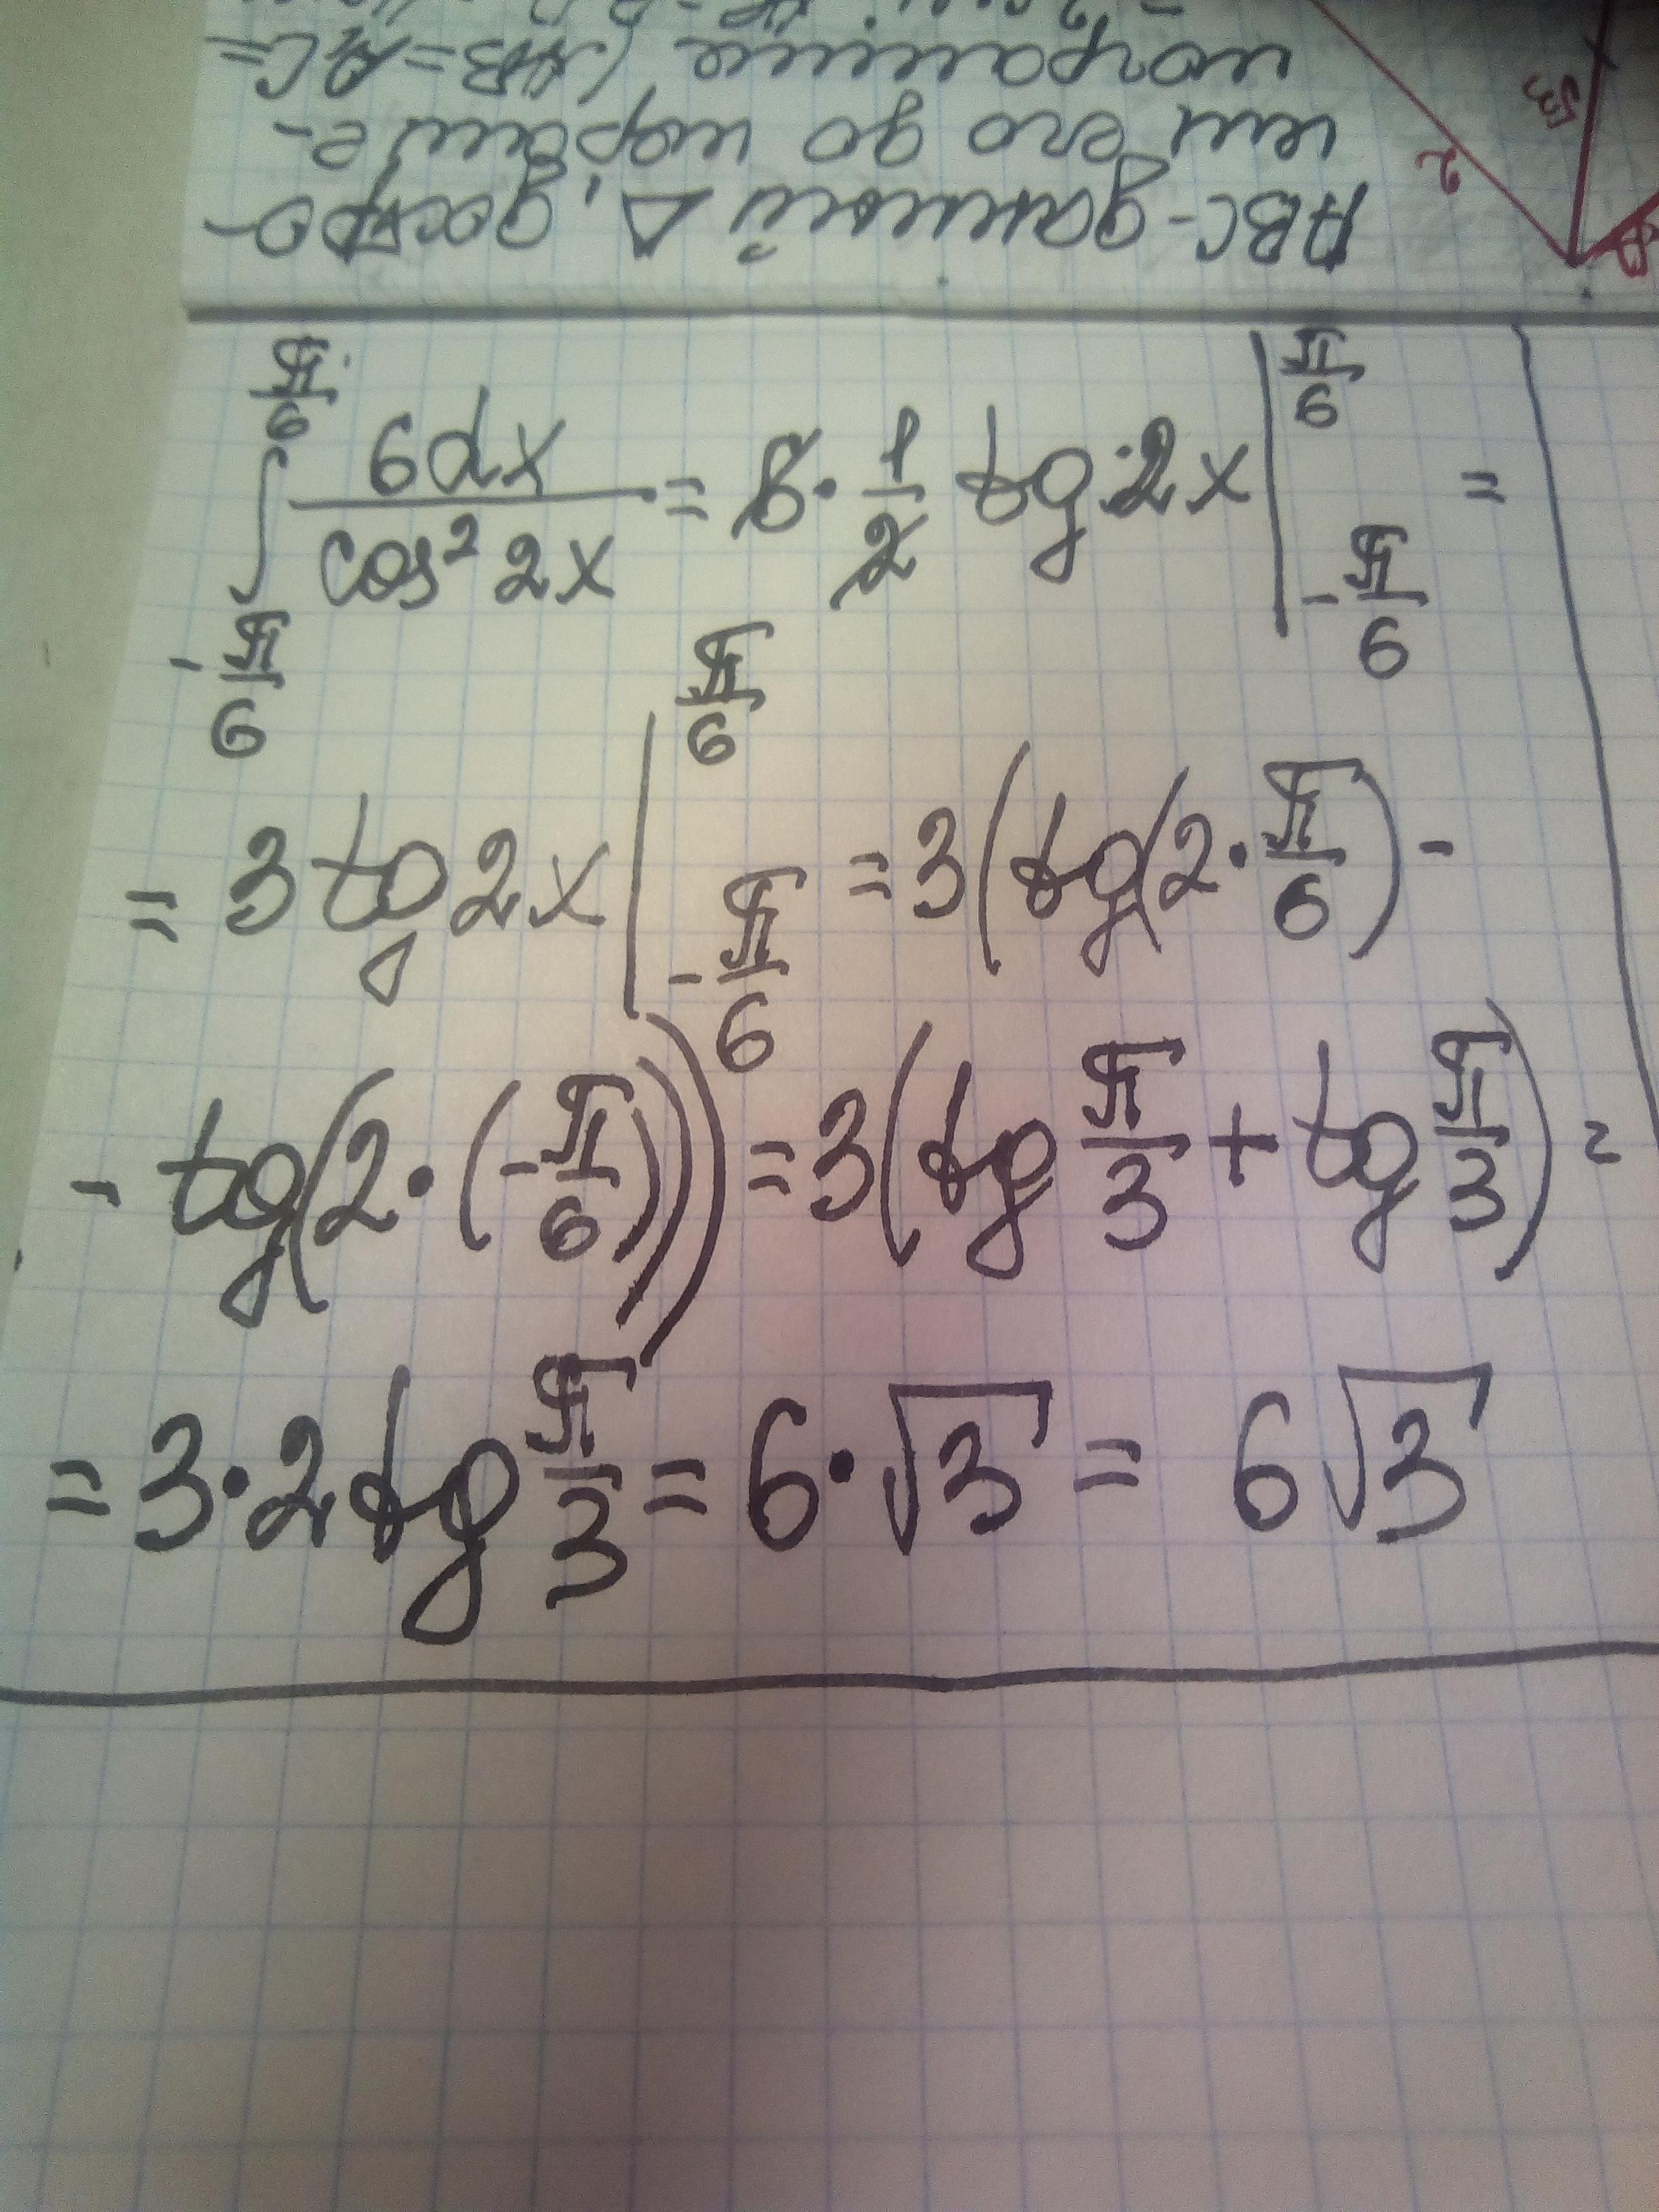 ABC-данный △, достро-
им его до паралле-
∫_{-π/6}^{π/6} 6dx/cos² 2x = 6 · 1/2 tg 2x |_{-π/6}^{π/6} =
= 3 tg 2x |_{-π/6}^{π/6} = 3(tg(2 · π/6) -
- tg(2 · (-π/6))) = 3(tg π/3 + tg π/3) =
= 3 · 2 tg π/3 = 6 · √3 = 6√3